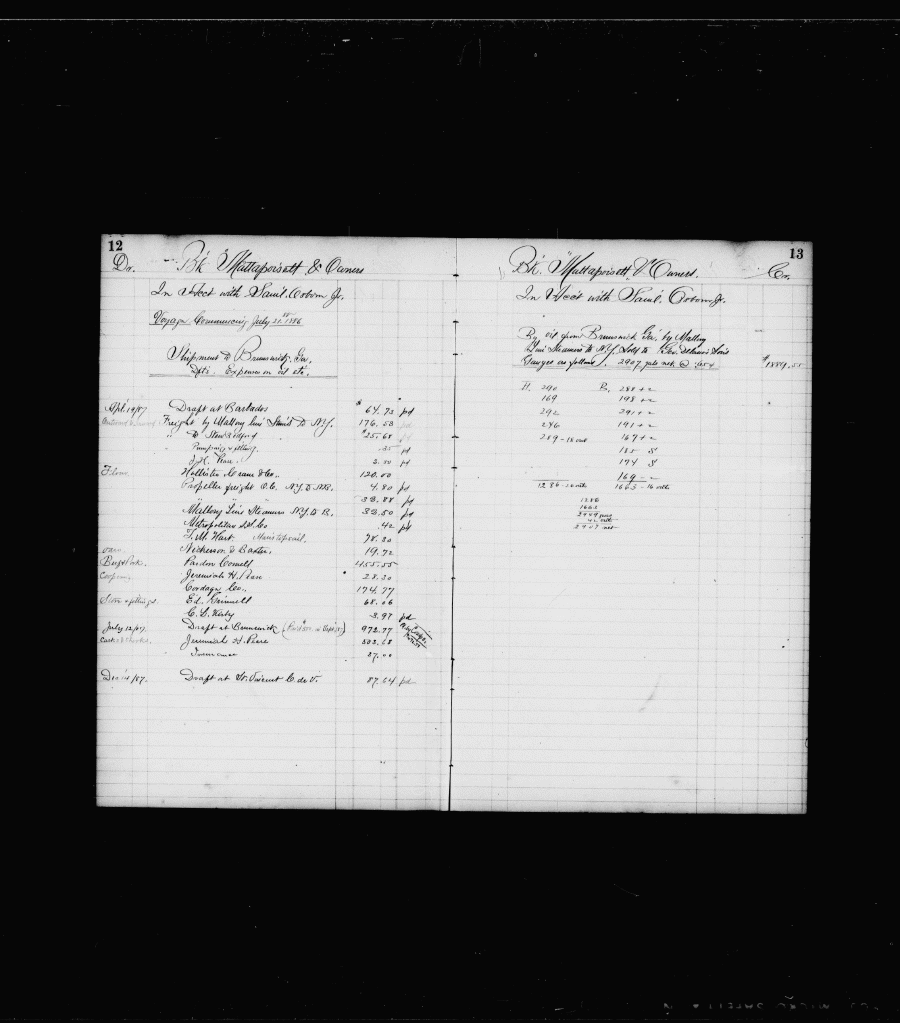 12
Dr. Bk Mattapoisett & Owners
In Acct with Saml. Osborn Jr.
Voyage Commencing July 21st 1886
Shipment to Brunswick, Ga,
Dfts. Expenses on oil etc.
Apl 19/87 Draft at Barbados $ 64.73 pd
Freight by Mallory line Stmrs to N.Y. 176.53 pd
" to New Bedford 25.68
Pumping & filling .35 pd
J.H. Pease. 3.50 pd
Flour Hollister Crane & Co. 120.00
Propeller freight N.Y. to N.B. 4.80 pd
33.88 pd
Mallory Line Steamers N.Y. to B. 33.50 pd
Metropolitan S.S. Co .42 pd
T.M. Hart Main topsail. 78.30
Nickerson & Baxter. 19.72
Beef & Pork. Pardon Cornell 455.55
Jeremiah H. Pease 28.30
Cordage Co. 174.77
Ed. Grinnell 68.06
C.L. Kirby 3.97 pd
July 12/87 Draft at Brunswick 972.77
Casks & Jeremiah H. Pease 503.68
Insurance 37.00
Dec 14/87. Draft at St. Vincent C. de V. 87.64 pd
13
Bk. Mattapoisett & Owners. Cr.
In Acct with Saml. Osborn Jr.
By oil from Brunswick Ga, by Mallory
Line Steamers to N.Y. Sold to Geo.
Gauged as follows. 2907 gals net @ .65 $1889.55
H. 290 B. 288 + 2
169 198 + 2
292 291 + 2
246 191 + 2
289 - 18 out 167 + 2
185 S
194 S
169 - 2
1286 - 26 outs 1663 - 16 outs
1286
1663
2949
42 outs
2907 net